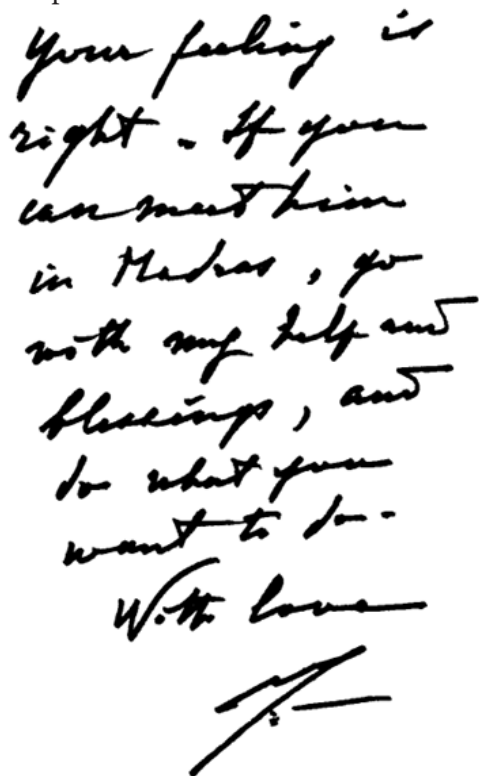 Your feeling is
right. If you
can meet him
in Madras, go
with my help and
blessings, and
do what you
want to do.
With love